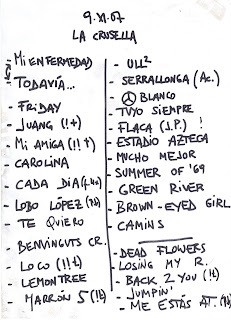 9.XI.07
LA CRUSELLA
- MI ENFERMEDAD
- TODAVÍA...
- FRIDAY
- JUANG (!+)
- MI AMIGA (!!t)
- CAROLINA
- CADA DÍA
- LOBO LÓPEZ
- TE QUIERO
- BENVINGUTS CR.
- LOCO (!!t)
- LEMON TREE
- MARRÓN 5
- ULL²
- SERRALLONGA (Ac.)
- BLANCO
- TUYO SIEMPRE
- FLACA (J.P.) !
- ESTADIO AZTECA
- MUCHO MEJOR
- SUMMER OF '69
- GREEN RIVER
- BROWN-EYED GIRL
- CAMINS
- DEAD FLOWERS
- LOSING MY R.
- BACK 2 YOU
- JUMPIN'
- ME ESTÁS AT.